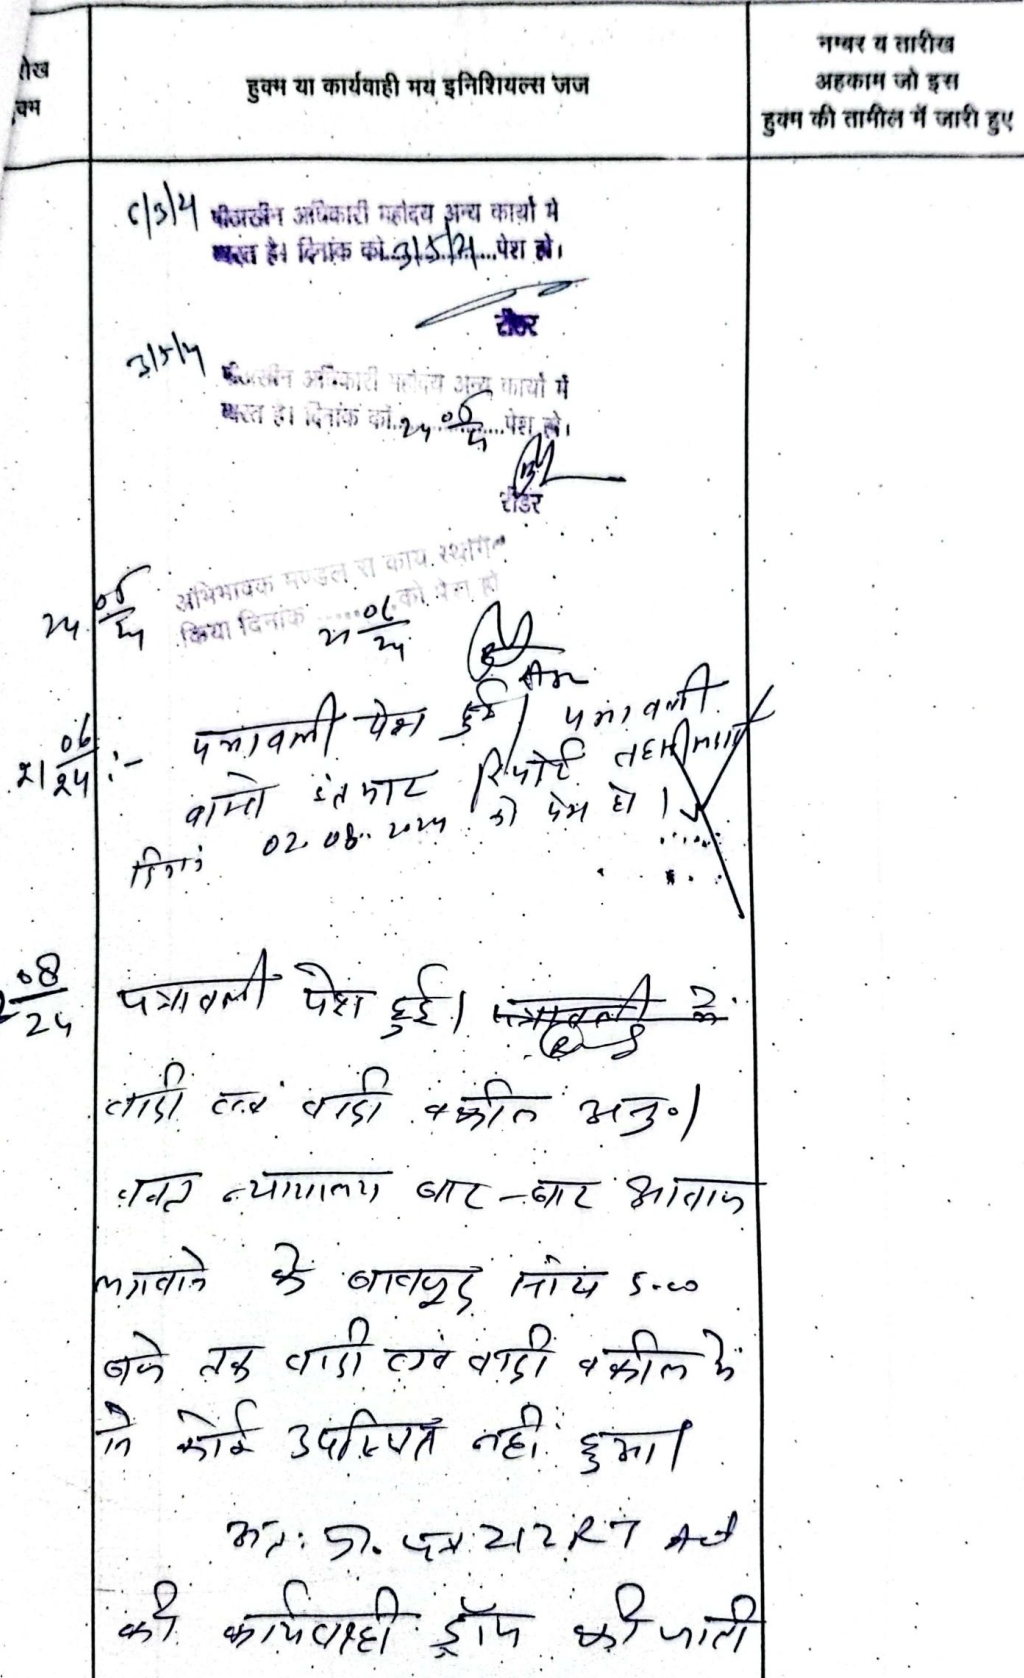 हुक्म या कार्यवाही मय इनिशियल्स जज
नम्बर व तारीख
अहकाम जो इस
हुक्म की तामील में जारी हुए
पीठासीन अधिकारी महोदय अन्य कार्यो में
व्यस्त है। दिनांक को 3/5/24 पेश हो।
रीडर
3/5/24
पीठासीन अधिकारी महोदय अन्य कार्यो में
व्यस्त है। दिनांक को 24 05/24 पेश हो।
रीडर
24 05/24
अभिभावक मण्डल
किया दिनांक 21 06/24 को पेश हो
21 06/24 :- पत्रावली पेश हुई। पत्रावली
वास्ते इंतजार रिपोर्ट तहसीलदार
दिनांक 02.08.2024 को पेश हो।
08/24 पत्रावली पेश हुई।
वादी एवं वादी वकील अनु०।
वक्त न्यायालय बार-बार आवाज
लगवाने के बावजूद सांय 5-00
बजे तक वादी एवं वादी वकील में
से कोई उपस्थित नहीं हुआ।
अतः प्रा. पत्र 212 RT Act
की कार्यवाही ड्रॉप की जाती